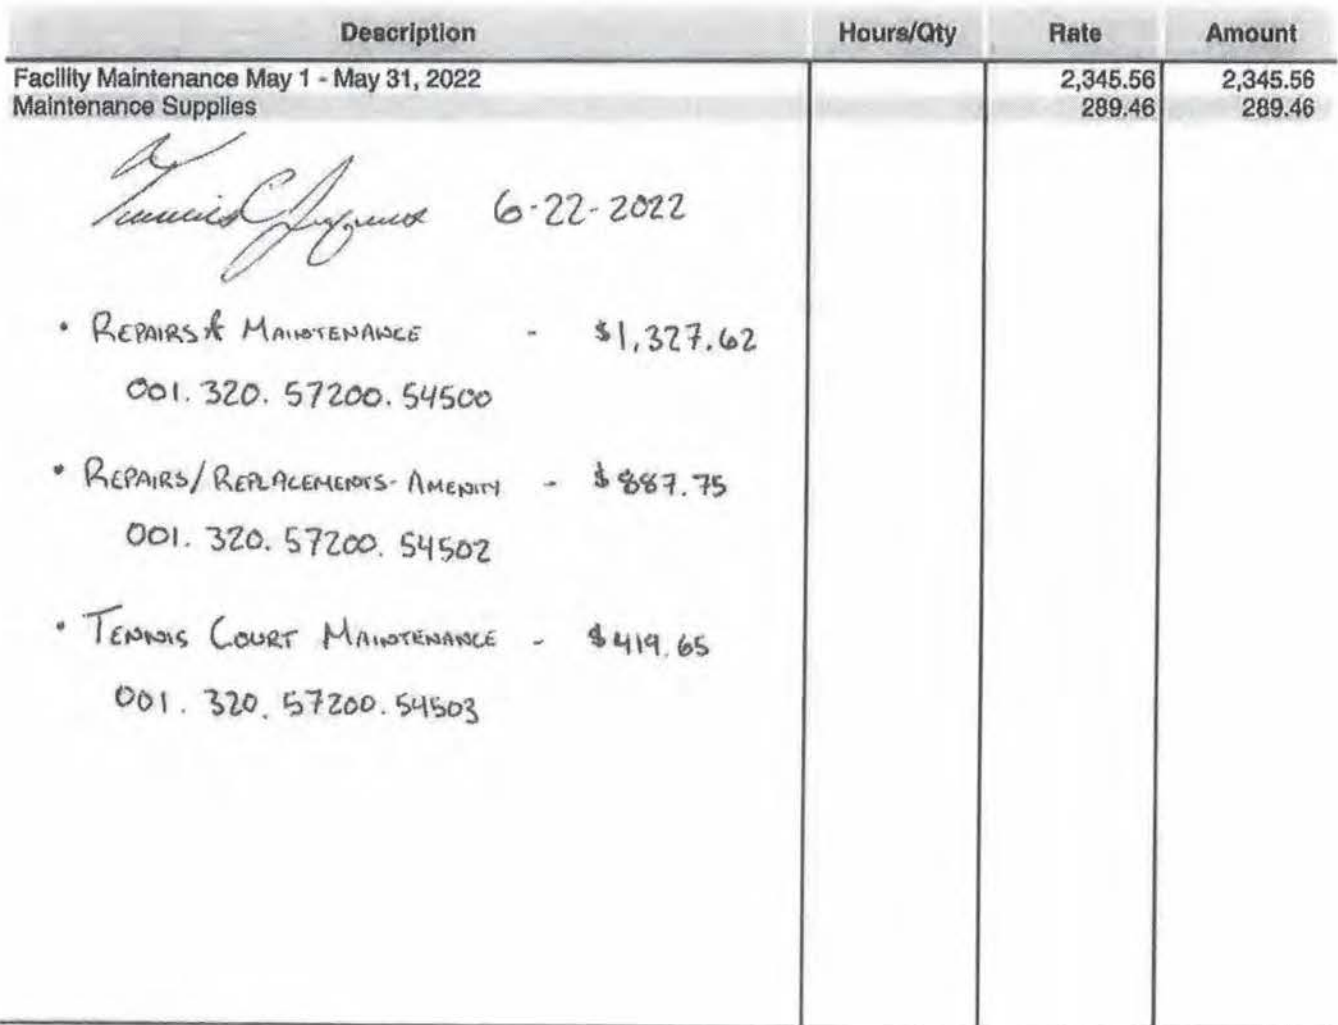 Description Hours/Qty Rate Amount
Facility Maintenance May 1 - May 31, 2022 2,345.56 2,345.56
Maintenance Supplies 289.46 289.46
6-22-2022
• REPAIRS & MAINTENANCE - $1,327.62
001.320.57200.54500
• REPAIRS/REPLACEMENTS-AMENITY - $887.75
001.320.57200.54502
• TENNIS COURT MAINTENANCE - $419.65
001.320.57200.54503